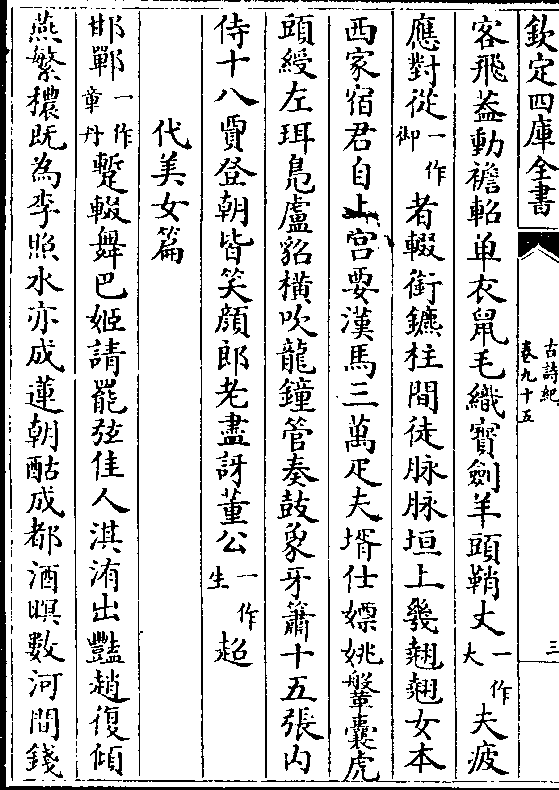 欽定四庫全書
古詩紀
卷九十五
三
客飛葢動襜軺单衣鼠毛織寳劍羊頭鞘丈一作大夫疲
應對從一作御者輟銜鑣柱間徒脉脉垣上幾翹翹女本
西家宿君自上宫要漢馬三萬疋夫壻仕嫖姚鞶囊虎
頭綬左珥鳬盧貂横吹龍鐘管奏鼓象牙簫十五張内
侍十八賈登朝皆笑顔郎老盡訝董公一作生超
代美女篇
邯鄲一作章丹蹔輟舞巴姬請罷弦佳人淇洧出豔趙復傾
燕繁穠既為李照水亦成蓮朝酤成都酒暝數河間錢